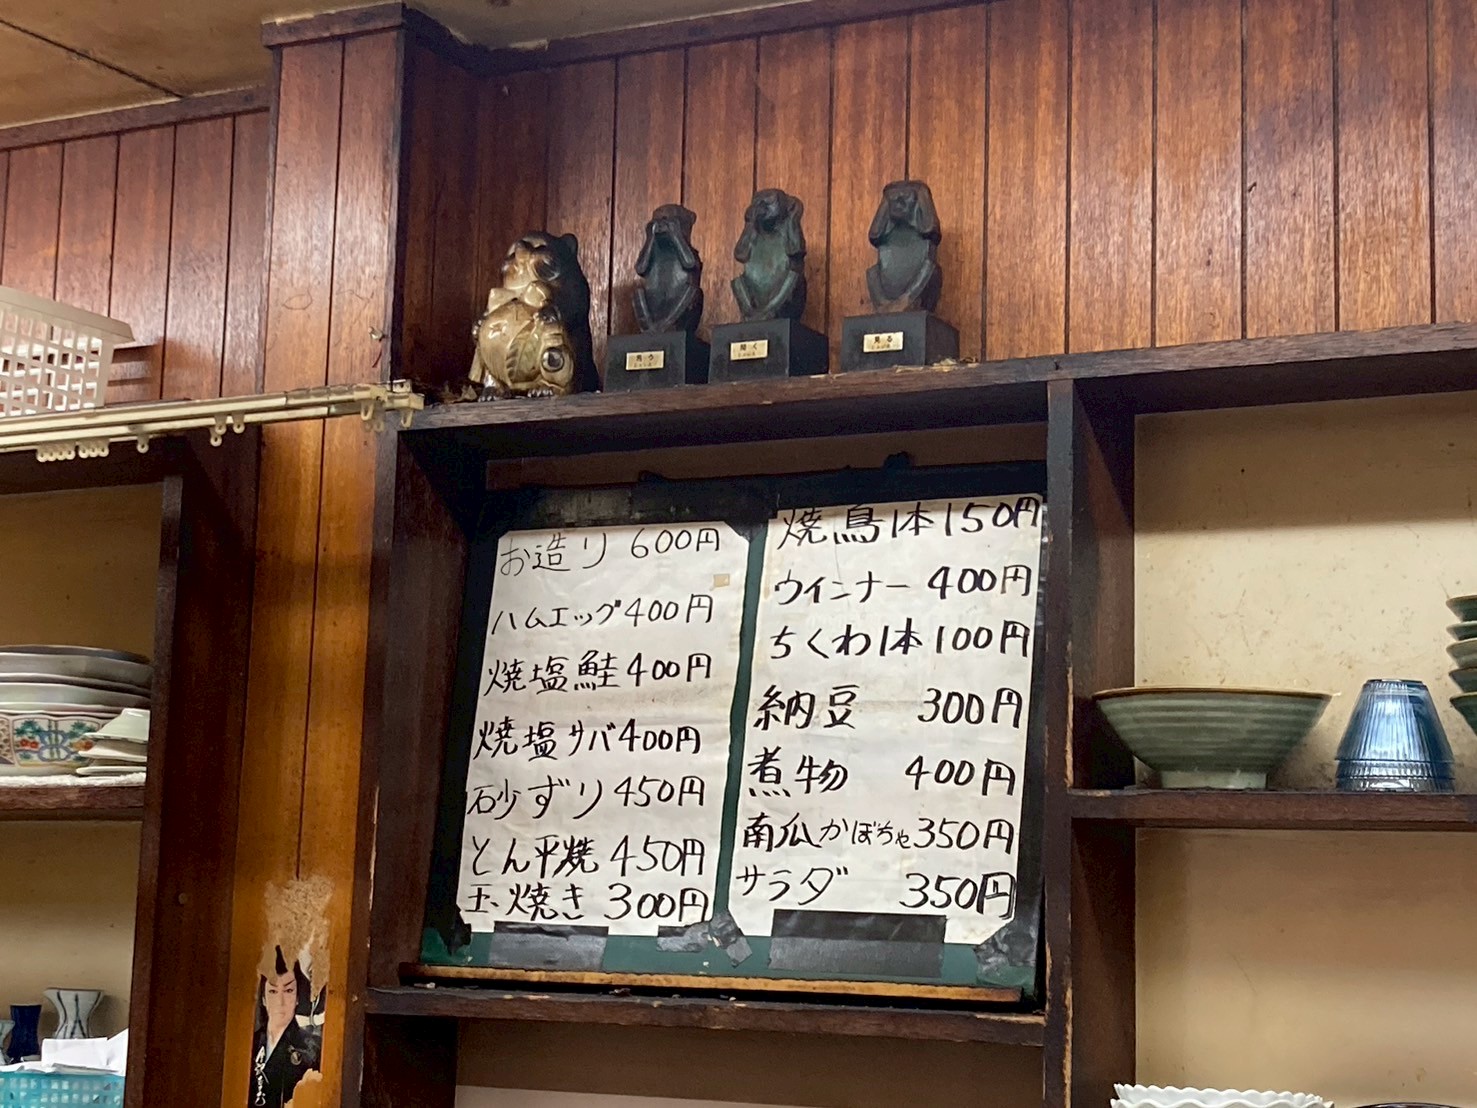 言う
聞く
見る
お造り 600円
ハムエッグ 400円
焼塩鮭 400円
焼塩サバ 400円
砂ずり 450円
とん平焼 450円
玉焼き 300円
焼鳥1本 150円
ウインナー 400円
ちくわ1本 100円
納豆 300円
煮物 400円
南瓜かぼちゃ 350円
サラダ 350円